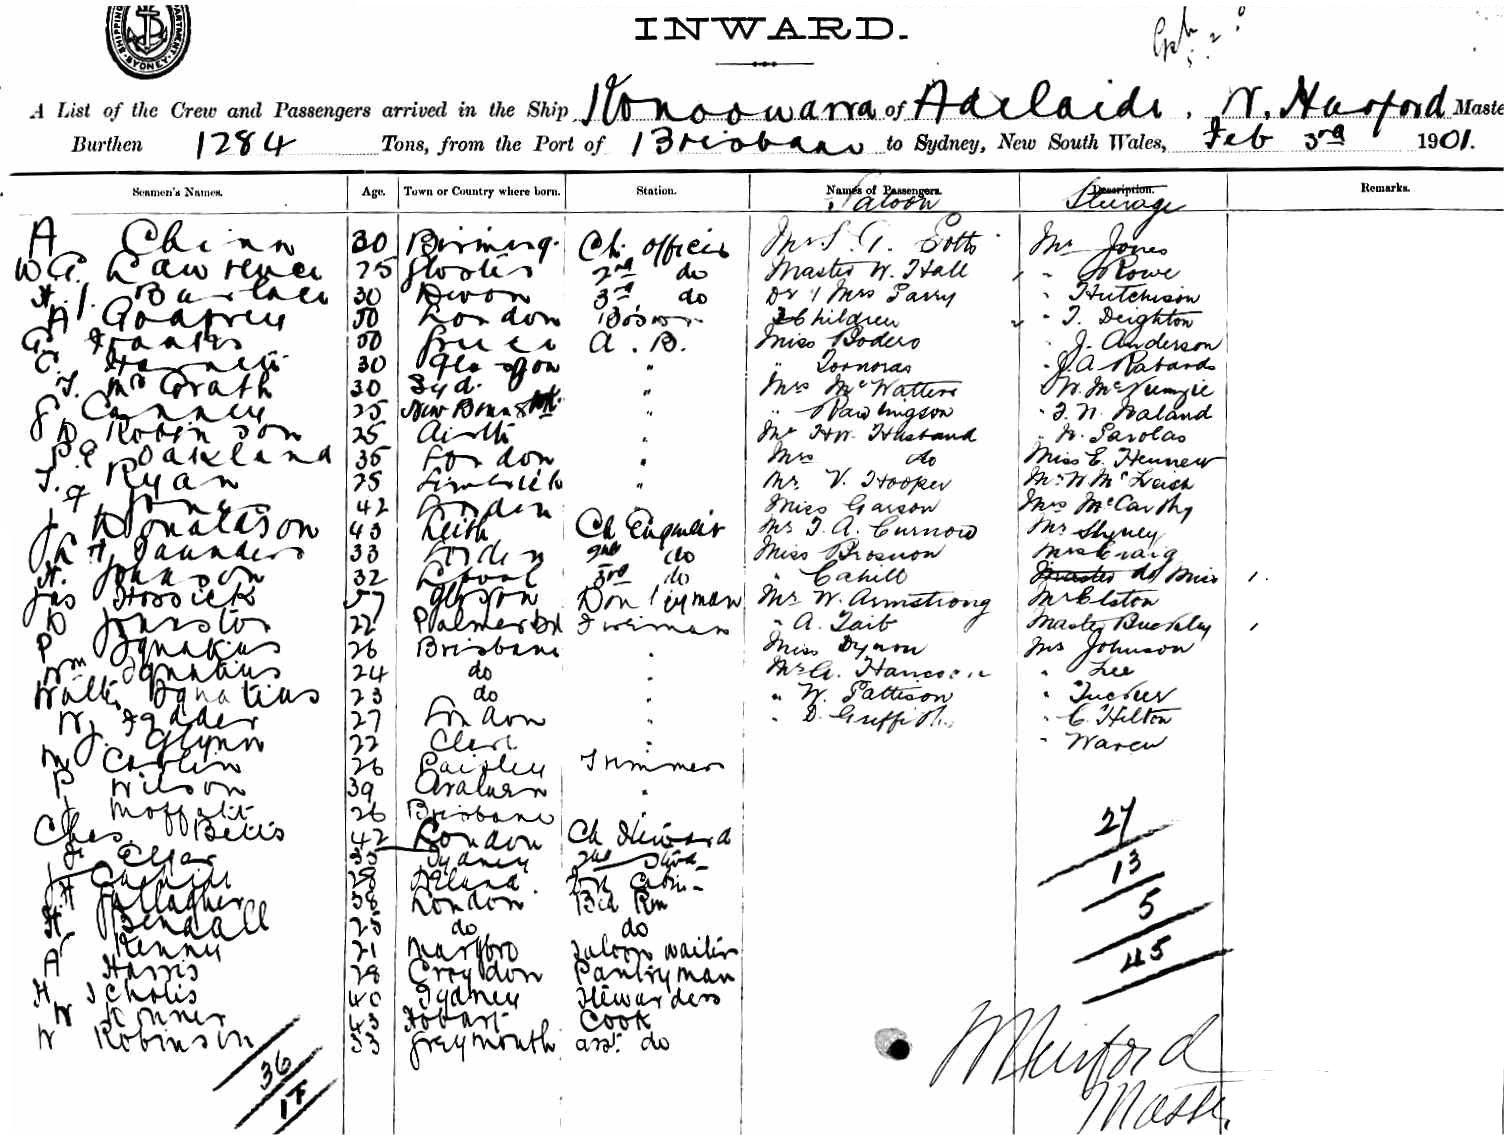 SHIPPING DEPARTMENT SYDNEY
INWARD.
A List of the Crew and Passengers arrived in the Ship Konoowarra of Adelaide, W. Hurford Maste
Burthen 1284 Tons, from the Port of Brisbane to Sydney, New South Wales, Feb 3rd 1901.
Seamen's Names. Age. Town or Country where born. Station. Names of Passengers. Description. Remarks.
Saloon Steerage
A Chinn 30 Birming. Ch. officer Mrs Potts Mr Jones
W G. Lawrence 25 Gloster 2nd do Master W. Hall " Rowe
30 Devon 3rd do Dr & Mrs Parry " Hutchison
A Godfrey 50 London Bosun 3 Children " T. Deighton
G Franks 50 Greece A. B. Miss Bodero " J. Anderson
C. 30 " " " J. A. Rabards
T. McGrath 30 Syd. " Mrs McWatters W. McKenzie
25 New " " Rawlingson " T. W. Waland
D Robinson 25 " Mr HW. Husband " N. Parolas
P. E Oakland 35 London " Mrs do Miss E.
T. Ryan 25 Limerick " Mr V. Hooper Mr W McLeish
J Jones 42 London Miss Garson Mrs McCarthy
J Donaldson 43 Leith Ch Engineer Mr J. A. Curnow Mr
H Saunders 33 London 2nd do Miss Brosnon Mrs Craig
H. Johnson 32 L'pool 3rd do " Cahill Master do Miss 1.
Jas Hossick 57 Glasgow Donkeyman Mr W. Armstrong Mr Elston
D Johnston 22 Palmerston Fireman " A. Tait Master Buckley 1
P Ignatius 26 Brisbane " Miss Dynon Mr Johnson
Wm Ignatius 24 do " Mr G. Hancock " Lee
Walter Ignatius 23 do " " W. Pattison " Tucker
W. 27 London " " D. Griffith " C. Hilton
J. Glynn 22 Clare " " Waren
M Carolin 26 Paisley Trimmer
P Wilson 39 Araluen "
J Moffatt 26 Brisbane "
Chas. Betts 42 London Ch Steward 27
35 Sydney 2nd Stwd 13
28 Ireland.
H Gallagher 38 London Bed Rm 5
H Bendall 25 do do
Kenny 21 Marlboro Saloon waiter 45
A Harris 28 Croydon Pantryman
H Scholes 40 Sydney Stewardess
W Konner 43 Hobart Cook
W Robinson 33 Greymouth asst. do
36 W Hurford
18 Master